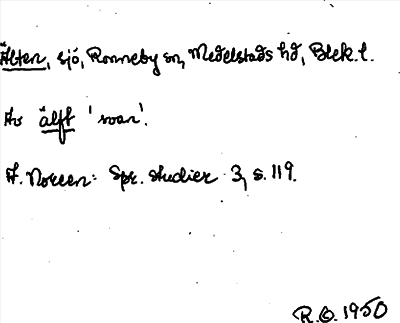 Älten, sjö, Ronneby sn, Medelstads hd, Blek. l.
Av älft 'svan'.
A. Noreen: Spr. studier 3, s. 119.
R.O. 1950